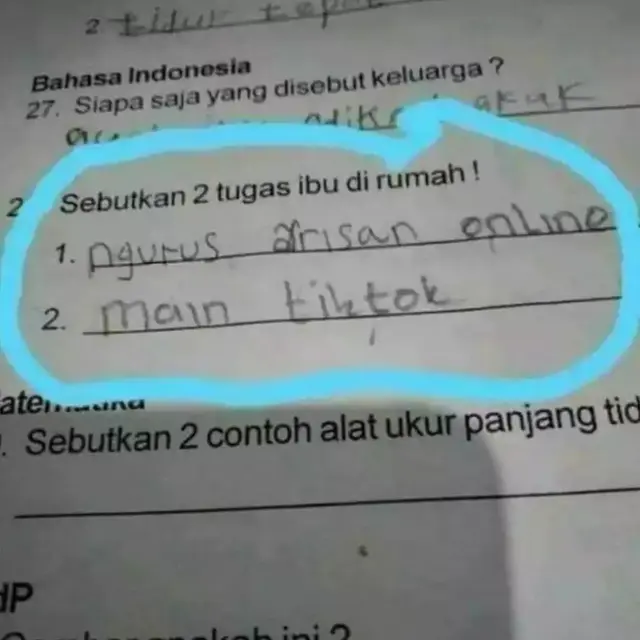 2 tidur tep
Bahasa Indonesia
27. Siapa saja yang disebut keluarga ?
adik kakak
2 Sebutkan 2 tugas ibu di rumah !
1. ngurus arisan online
2. main tiktok
. Sebutkan 2 contoh alat ukur panjang tid